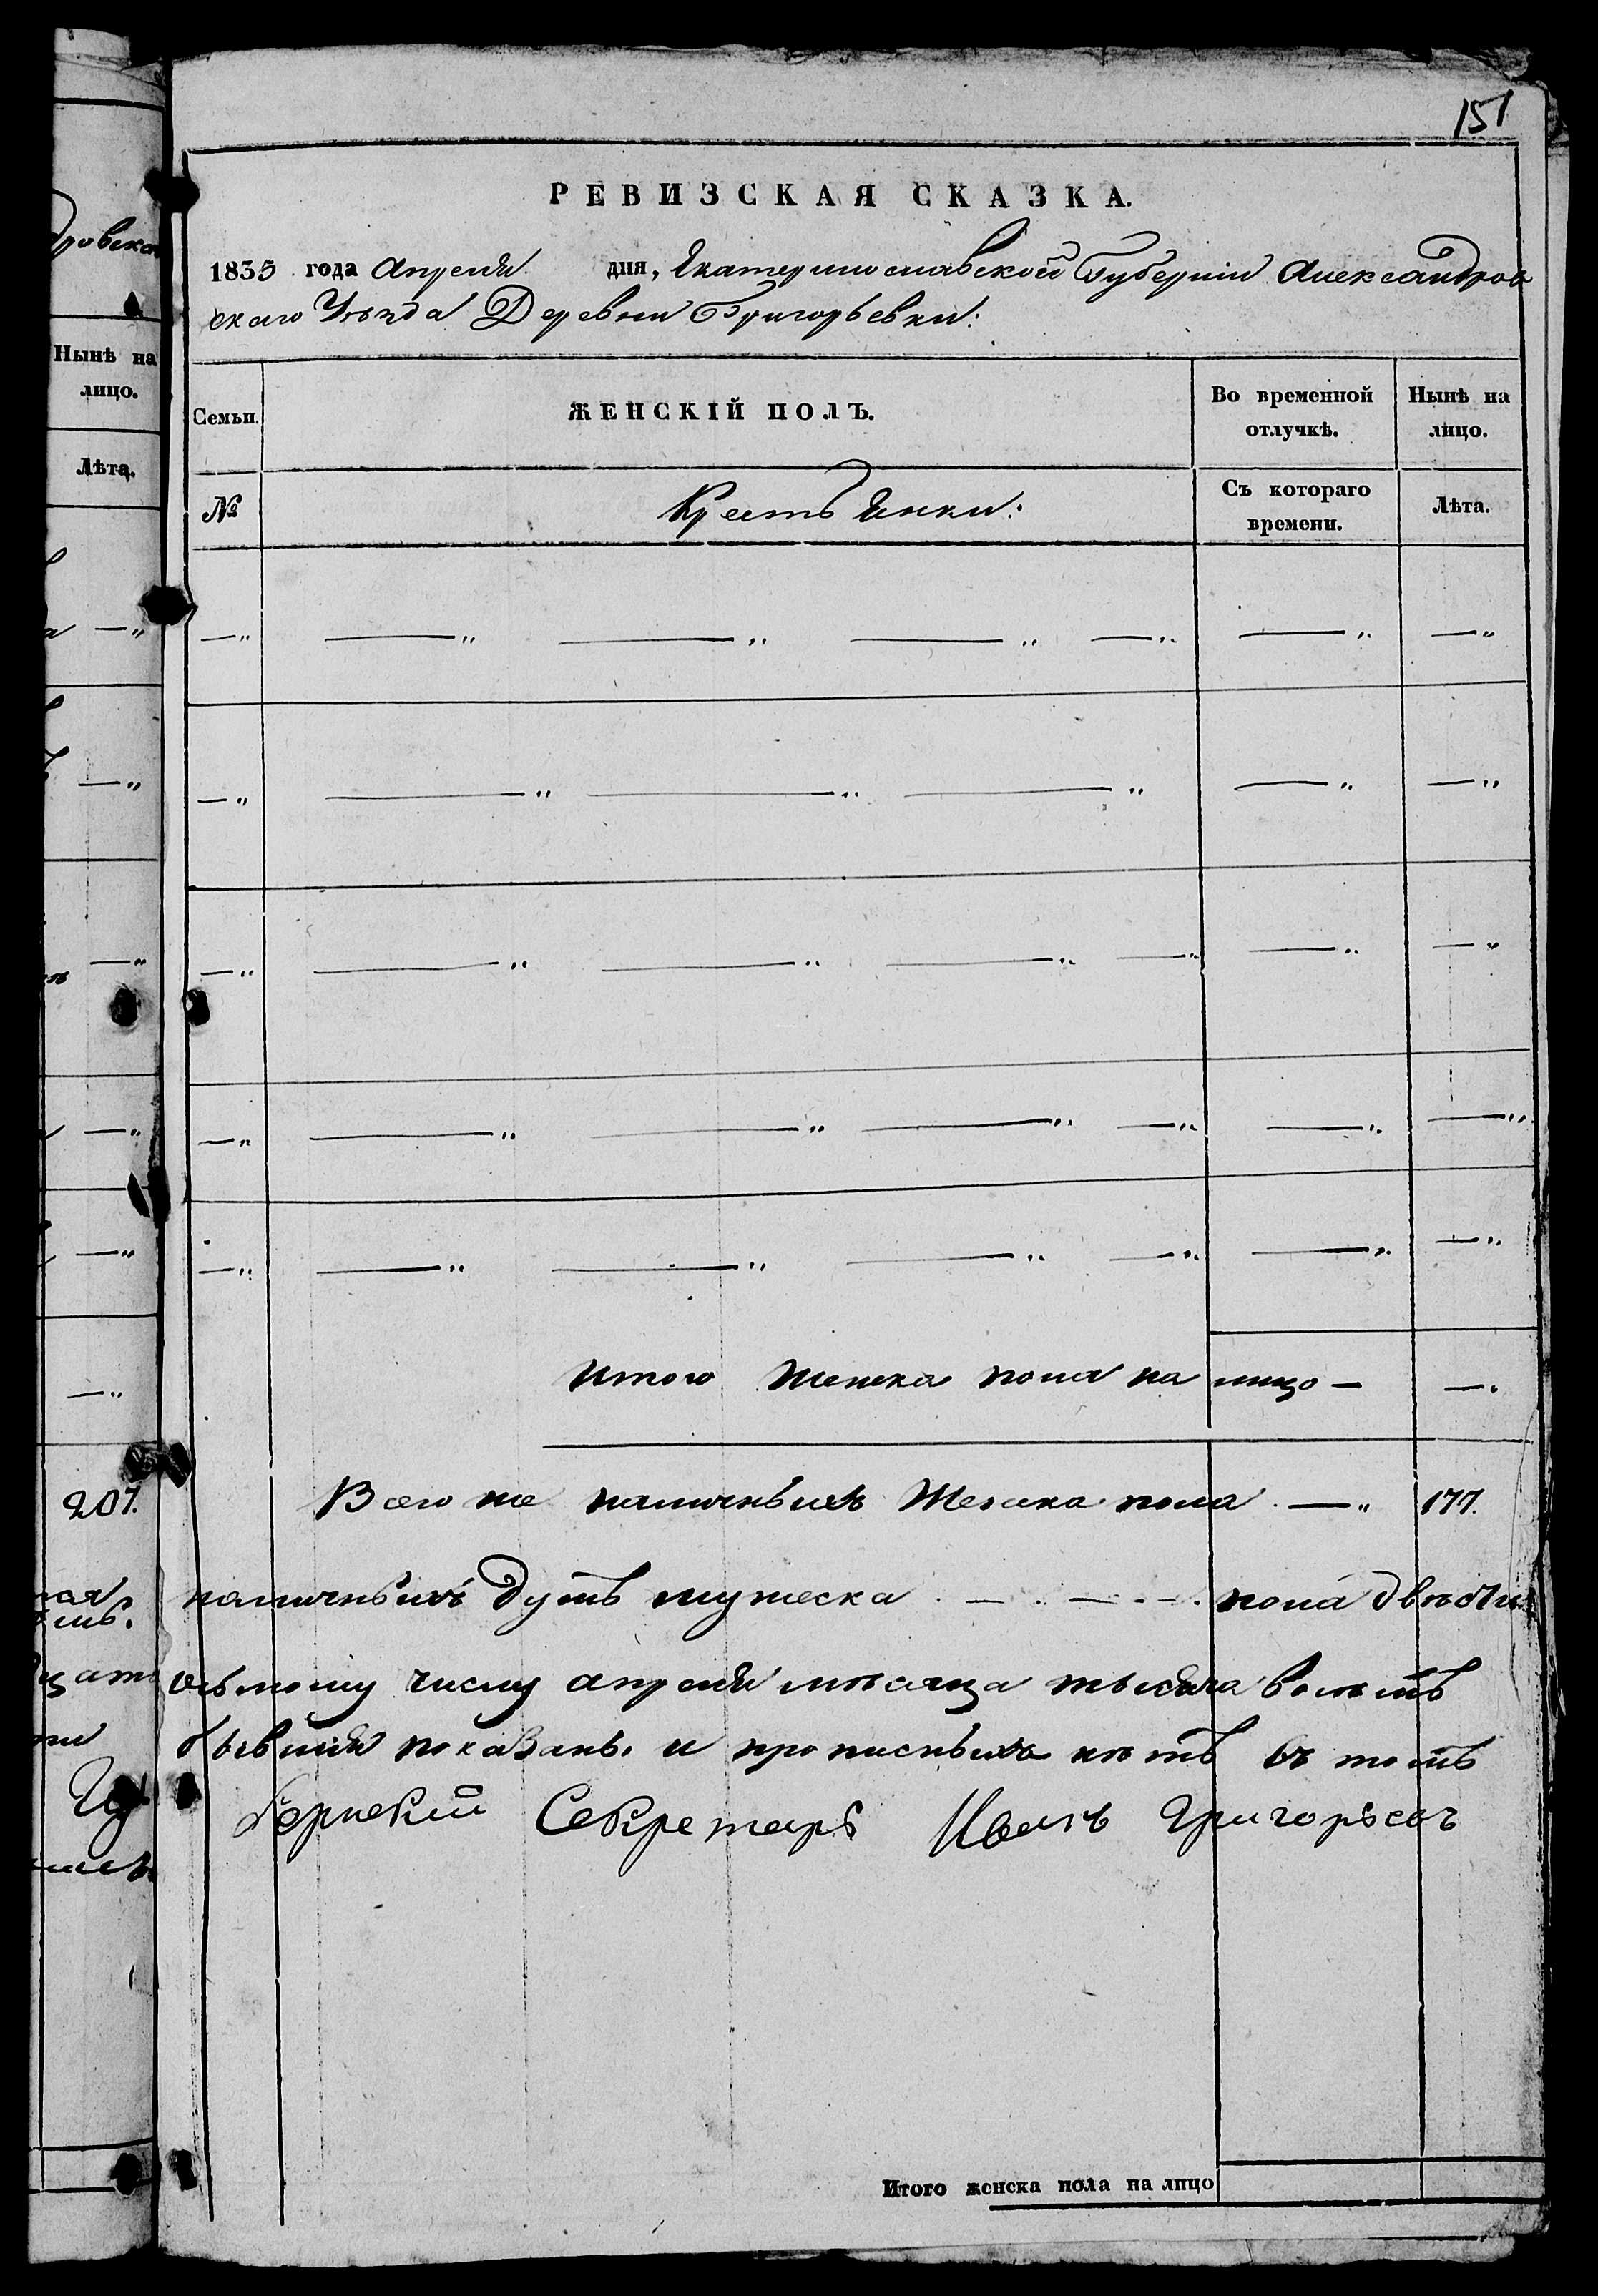 151
РЕВИЗСКАЯ СКАЗКА.
1835 года Апреля дня, Екатеринославской Губерніи Александров
скаго Уѣзда Деревни Григорьевки:
Семьи. ЖЕНСКІЙ ПОЛЪ. Во временной отлучкѣ. Нынѣ на лицо.
№ Крестьянки: Съ котораго времени. Лѣта.
Итого Женска пола на лицо —
Всего же наличныхъ Женска пола — 177.
наличныхъ душъ мужеска пола двѣсти
осьмому числу апреля мѣсяца тысяча восемъ
бывшія показаны. и прописныхъ нѣтъ въ томъ
бернскій Секретарь Иванъ Григорьевъ
Итого женска пола на лицо
дровска
Нынѣ на
лицо.
Лѣта.
207.